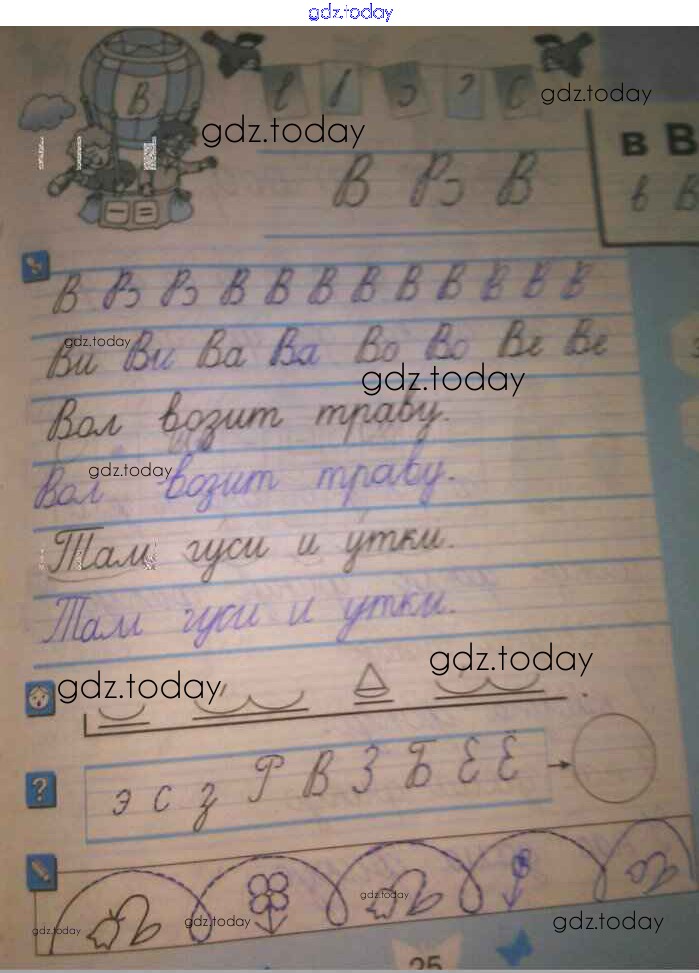 gdz.today
В
gdz.today
gdz.today
в В
в В
В Рз В
В Рз Рз В В В В В В В В В
gdz.today
Ви Ви Ва Ва Во Во Ве Ве
gdz.today
Вол возит траву.
gdz.today
Вол возит траву.
Там гуси и утки.
Там гуси и утки.
gdz.today
gdz.today
?
э с з Р В З Б Е Ё
gdz.today
gdz.today
gdz.today
gdz.today
25